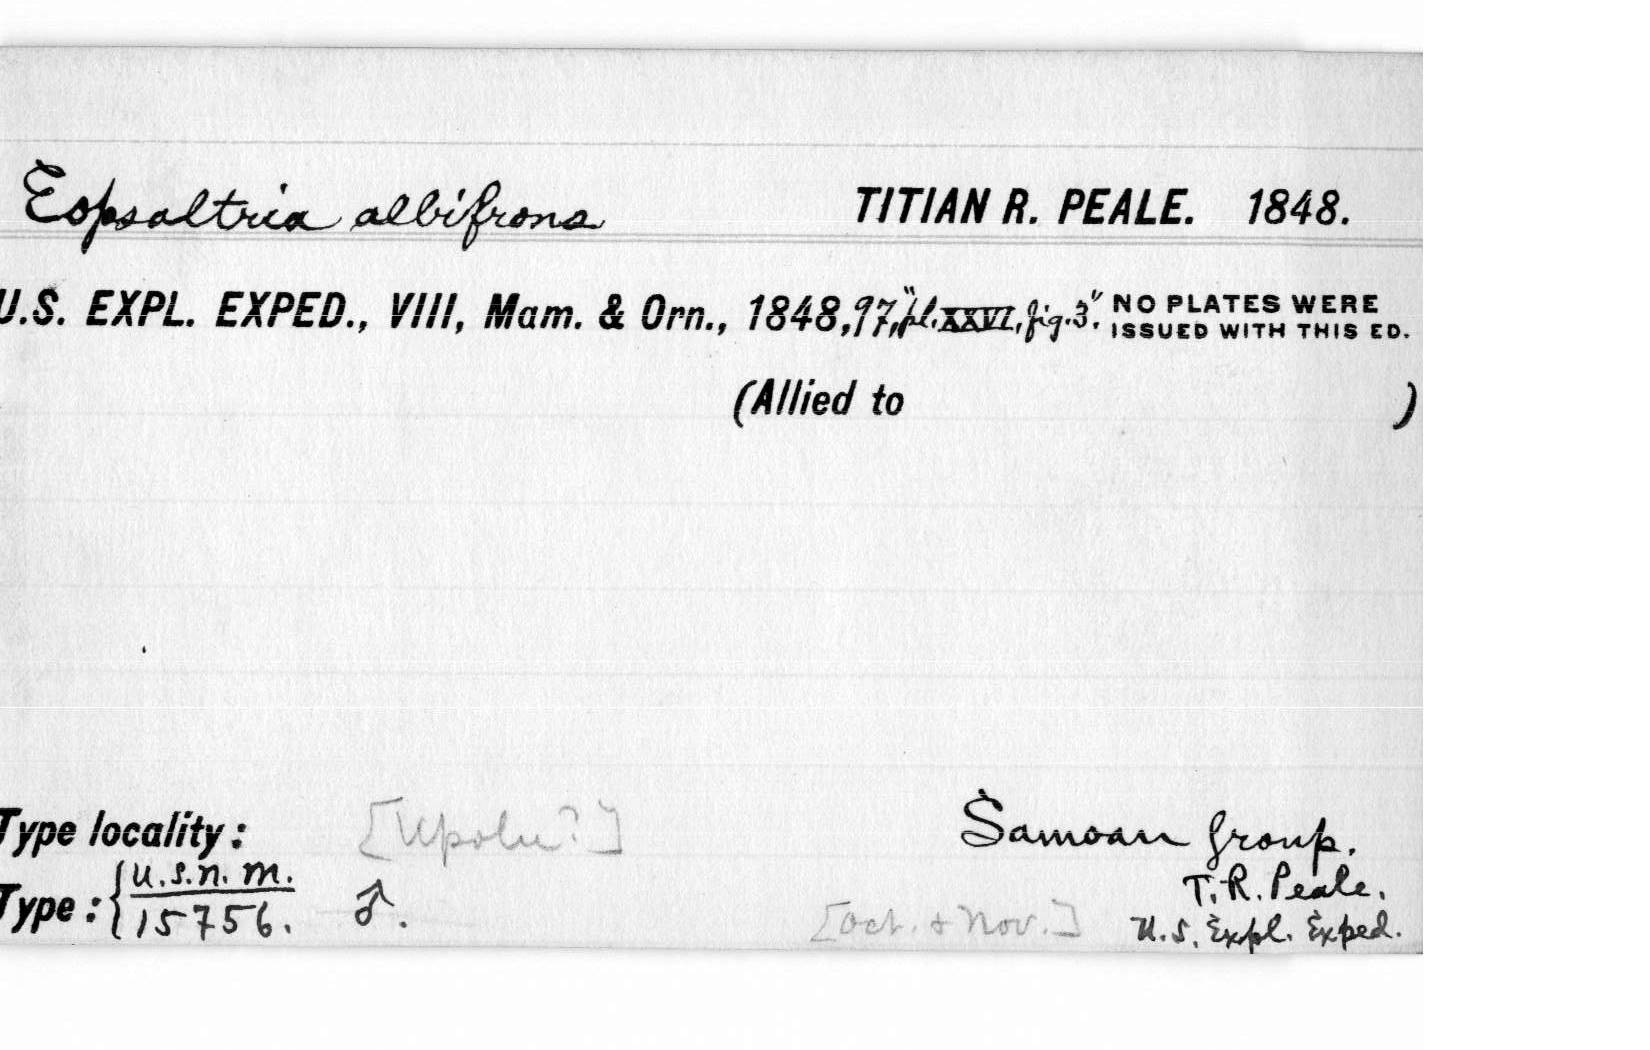 Eopsaltria albifrons TITIAN R. PEALE. 1848.
U.S. EXPL. EXPED., VIII, Mam. & Orn., 1848, 97, "pl. XXVI, fig. 3". NO PLATES WERE
ISSUED WITH THIS ED.
(Allied to )
Type locality: [Upolu?] Samoan Group.
T. R. Peale.
Type: { U.S.N.M. ♂. [Oct. & Nov.] U.S. Expl. Exped.
15756.